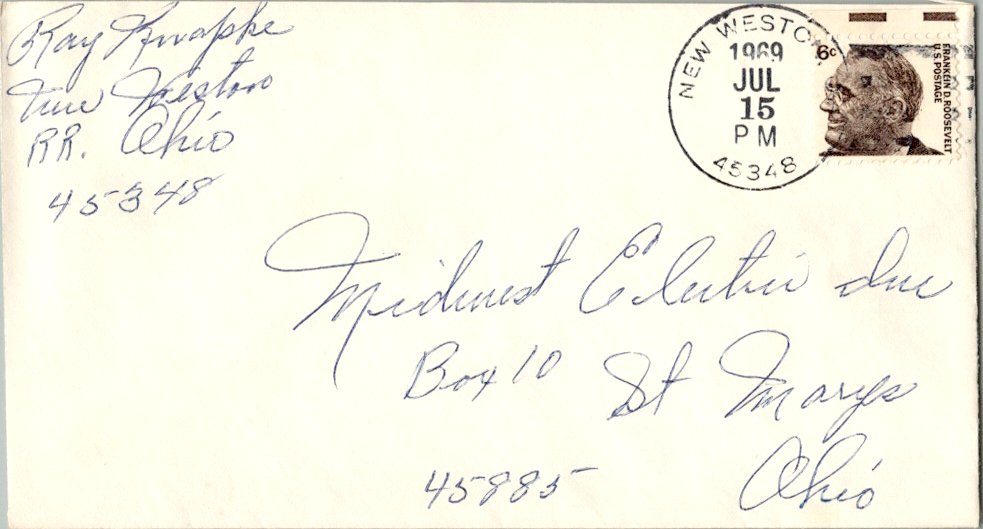 Ray Knapke
New Weston
RR. Ohio
45348
NEW WESTON,
1969
JUL
15
PM
45348
6c
FRANKLIN D. ROOSEVELT
U.S. POSTAGE
Midwest Electric Inc
Box 10 St Marys
45885 Ohio